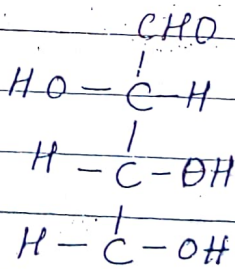 CHO
HO – C – H
H – C – OH
H – C – OH